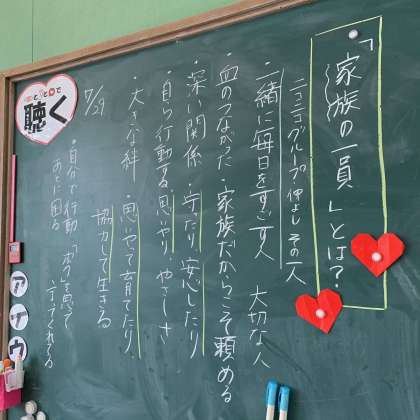 「家族の一員」とは?
ニコニコグループ 仲よし その一人
・一緒に毎日をすごす人 大切な人
・血のつながった・家族だからこそ頼める
・深い関係・守ったり、安心したり
・自ら行動する、思いやり、やさしさ
・大きな絆・思いやって育てたり、
協力して生きる
7/29
・自分で行動 「ボク」を思って
あとに困る 守ってくれてる
聴く
ア
イ
ウ